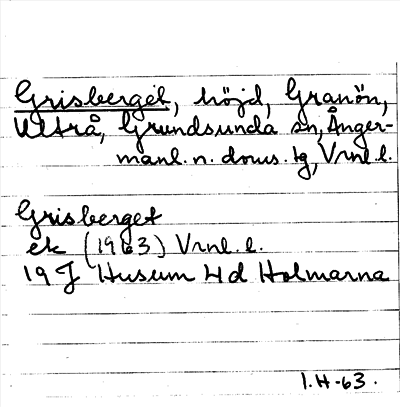 Grisberget, höjd, Granön,
Ultrå, Grundsunda sn, Ånger-
manl. n. doms. tg, Vrnl. l.
Grisberget
ek (1963) Vrnl. l.
19 J Husum 4d Holmarna
1.H-63.